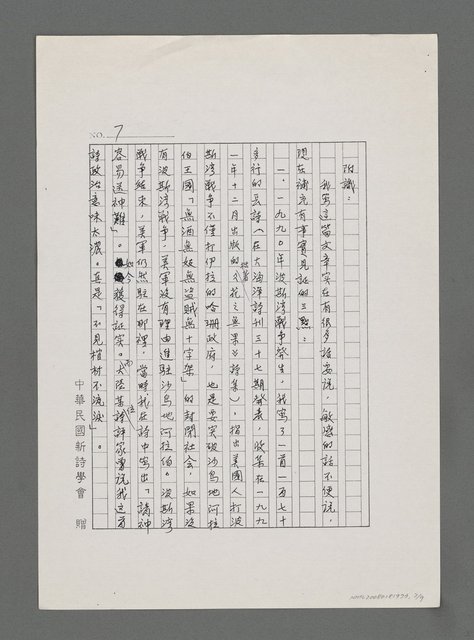 NO. 7
附識：
我寫這篇文章实在有很多話要說，敏感的話不便說，
現在補充有事實見証的三點：
一、一九九〇年波斯湾戰爭發生，我寫了一首一百七十
多行的長詩（在大海洋詩刊三十七期發表，收集在一九九
一年十二月出版的拙著《花之無果》詩集），指出美國人打波
斯湾戰爭不僅打伊拉的哈珊政府，也是要突破沙烏地阿拉
伯王國「無酒無妓無盜賊無十字架」的封閉社会，如果沒
有波斯湾戰爭，美軍沒有理由進駐沙烏地阿拉伯。波斯湾
戰爭結束，美軍仍然駐在那裡，當時我在詩中寫出「請神
容易送神難」。如今獲得証实。而大陸某位詩評家曾說我这首
詩政治意味太濃。真是「不見棺材不流淚」。
中華民國新詩學會　贈